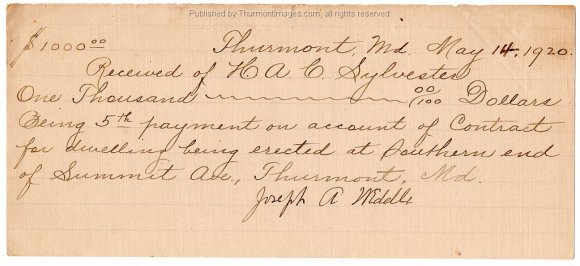 Published by ThurmontImages.com, all rights reserved.
$1000 00 Thurmont, Md. May 14, 1920.
Received of H A C. Sylvester
One Thousand 00/100 Dollars
Being 5th payment on account of Contract
for dwelling being erected at Southern end
of Summit Ave., Thurmont, Md.
Joseph A Weddle